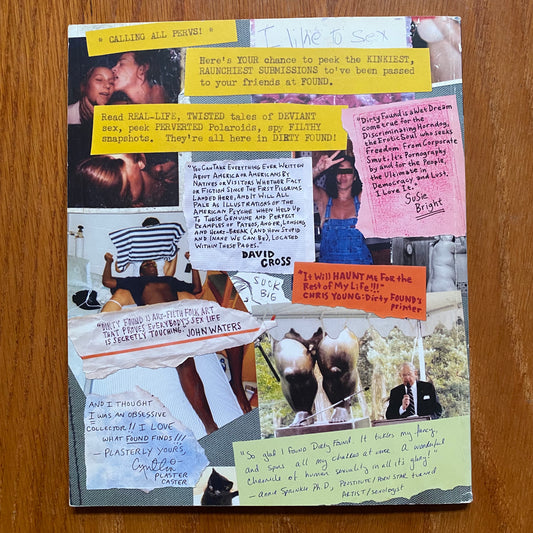 * CALLING ALL PERVS! *
I like to sex
Here's YOUR chance to peek the KINKIEST,
RAUNCHIEST SUBMISSIONS to've been passed
to your friends at FOUND.
Read REAL-LIFE, TWISTED tales of DEVIANT
sex, peek PERVERTED Polaroids, spy FILTHY
snapshots. They're all here in DIRTY FOUND!
"Dirty Found is a Wet Dream
come true for the
Discriminating Horndog,
the Erotic Soul who seeks
Freedom From Corporate
Smut. It's Pornography
by and for the People,
the Ultimate in
Democracy and Lust.
I Love It."
Susie
Bright
"You Can Take Everything Ever Written
About America or Americans By
Natives or Visitors Whether Fact
or Fiction Since The First Pilgrims
Landed Here, And It Will All
Pale As Illustrations of the
American Psyche When Held Up
To These Genuine and Perfect
Examples of Pathos, Anger, Longing
and Heart-Break (And How Stupid
and Inane We Can Be), Located
Within These Pages."
DAVID
CROSS
"It Will HAUNT Me For the
Rest of My Life!!!"
CHRIS YOUNG: Dirty FOUND's
printer
SUCK
BIG
"Dirty Found is Art-Filth Folk Art
That Proves Everybody's Sex Life
is Secretly Touching." JOHN WATERS
AND I THOUGHT
I WAS AN OBSESSIVE
COLLECTOR!! I LOVE
WHAT FOUND FINDS!!!
- PLASTERLY YOURS,
Cynthia
PLASTER
CASTER
"So glad I Found Dirty Found. It tickles my fancy,
and spins all my chakras at once. A wonderful
chronicle of human sexuality in all its glory!"
- Annie Sprinkle Ph.D., PROSTITUTE/PORN STAR turned
ARTIST/sexologist